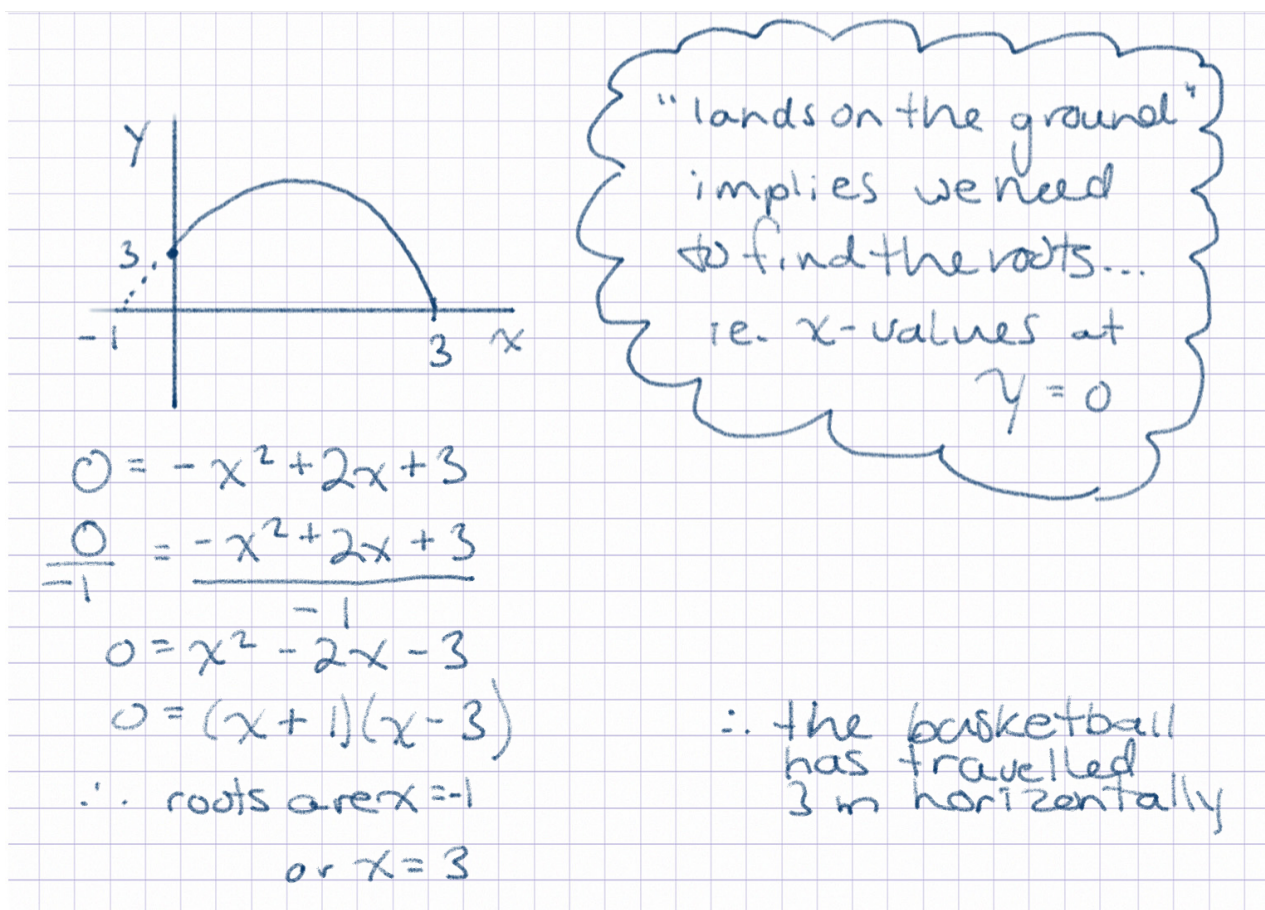 y
3
-1
3 x
"lands on the ground"
implies we need
to find the roots...
ie. x-values at
y = 0
0 = -x² + 2x + 3
0/-1 = (-x² + 2x + 3)/-1
0 = x² - 2x - 3
0 = (x + 1)(x - 3)
∴ roots are x = -1
or x = 3
∴ the basketball
has travelled
3 m horizontally